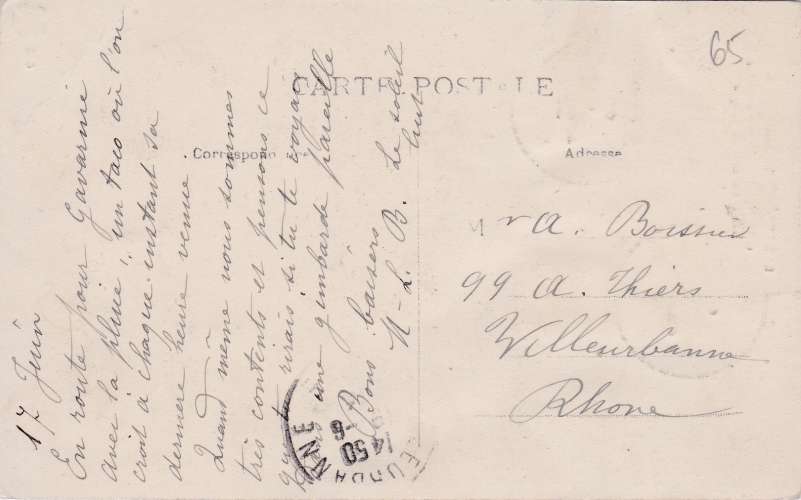 65
CARTE POSTALE
Correspon
Adresse
17 Juin
En route pour Gavarnie
avec la pluie, un taco où l'on
croit à chaque instant sa
dernière heure venue
Quand même nous sommes
très contents et pensons ce
que tu rirais si tu te voyais
dans une guimbarde pareille
Bons baisers Le soleil
M-L. B. luit
Mr A. Boissier
99 A. Thiers
Villeurbanne
Rhone
URBANNE
14 50